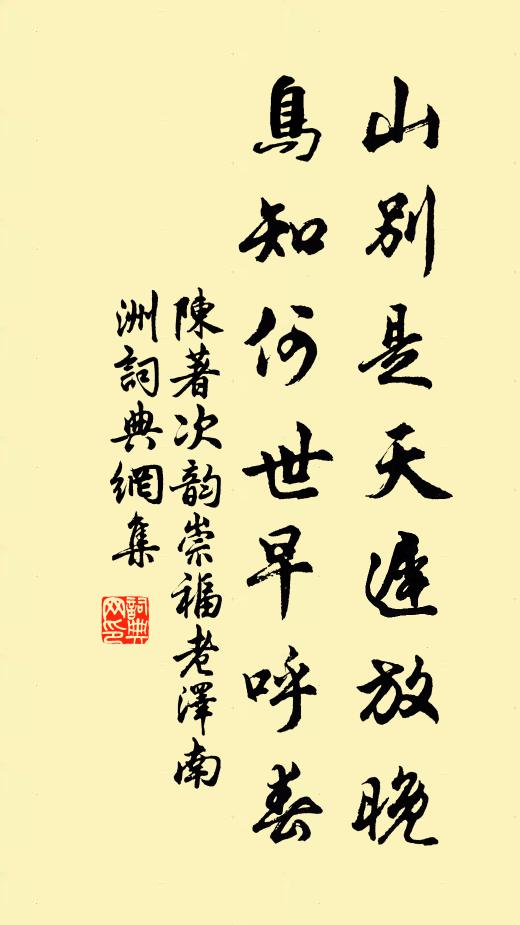 山別是天遲放晚
鳥知何世早呼春
陳著次韵崇福老澤南
洲詞典網集
詞典
网印